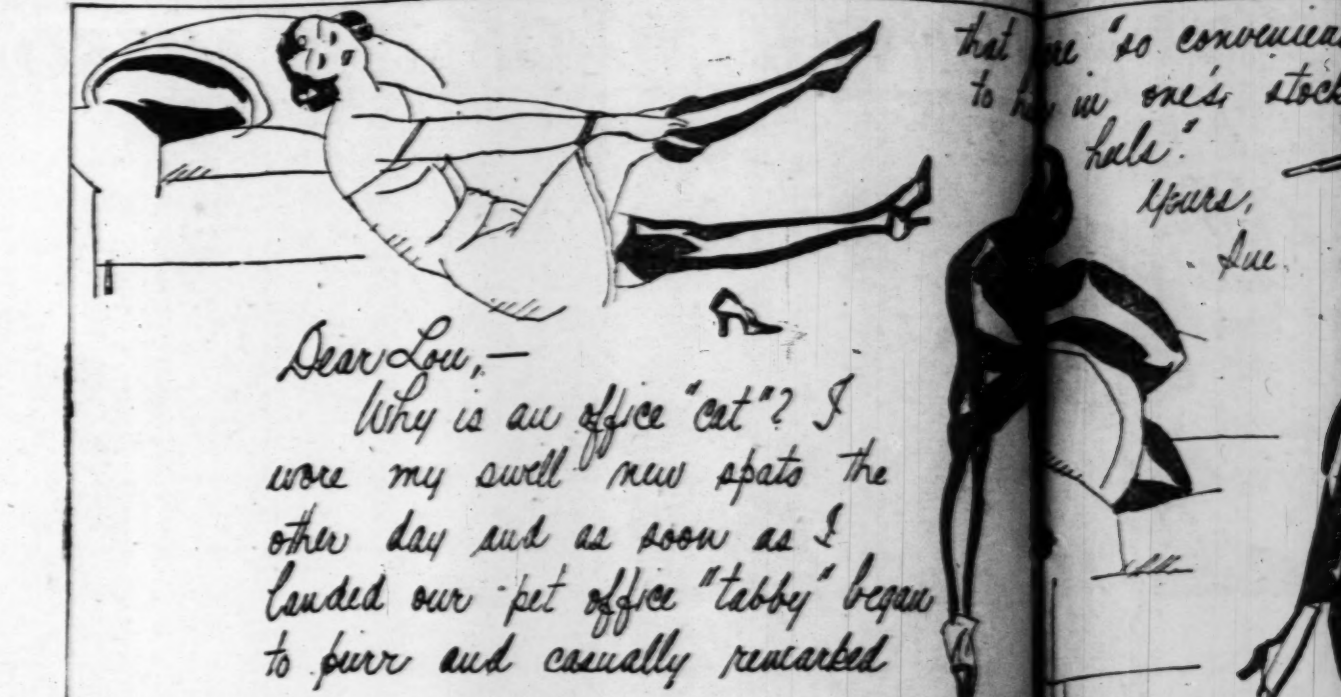 Dear Lou,—
Why is an office "cat"? I
wore my swell new spats the
other day and as soon as I
landed our pet office "tabby" began
to purr and casually remarked
that were "so convenien
to h in one's stock
heels".
Yours,
Sue.